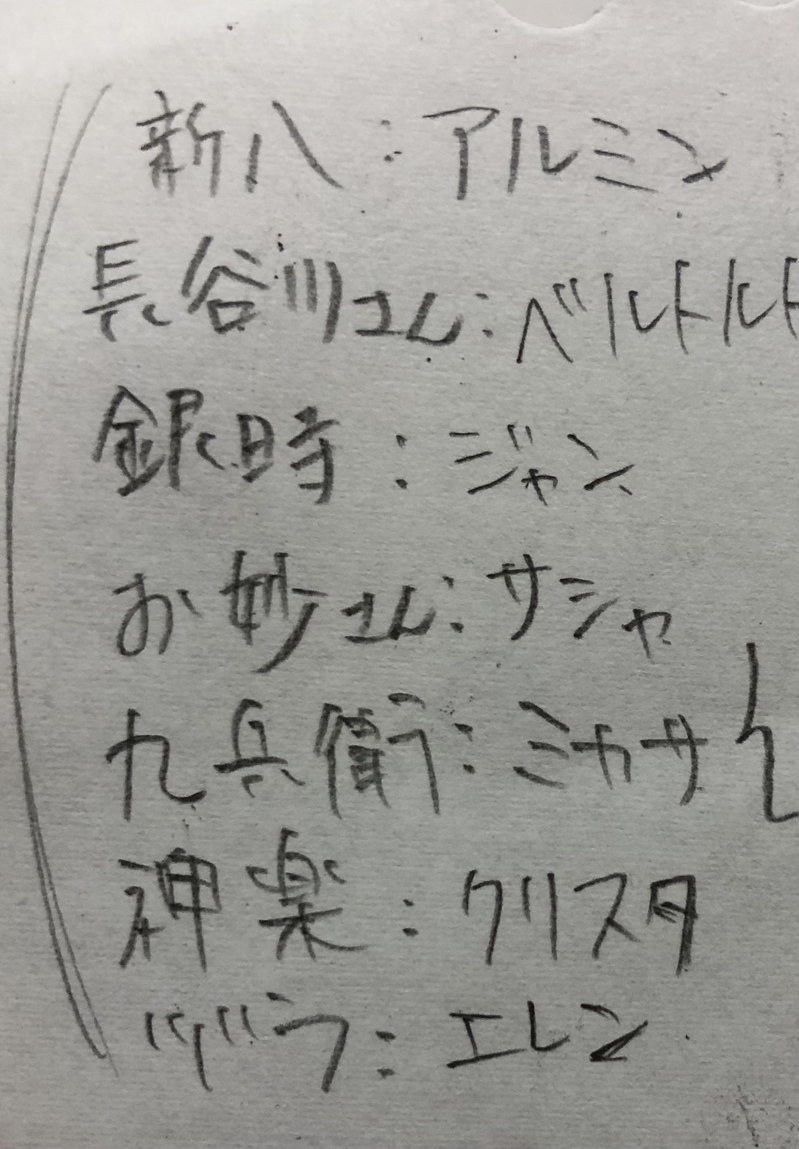 新八：アルミン
長谷川さん：ベルトルト
銀時：ジャン
お妙さん：サシャ
九兵衛：ミカサ
神楽：クリスタ
ヅラ：エレン